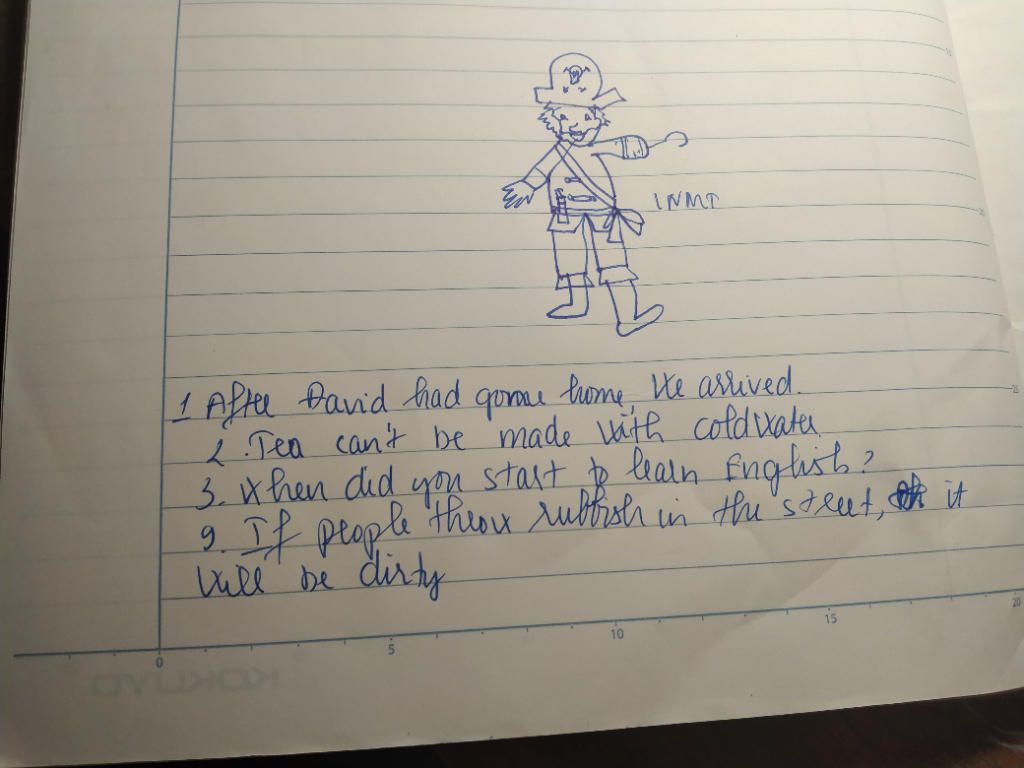 INMT
1 After David had gone home, we arrived.
2. Tea can't be made with cold water.
3. When did you start to learn English?
9. If people throw rubbish in the street, it
will be dirty
0 5 10 15 20
25